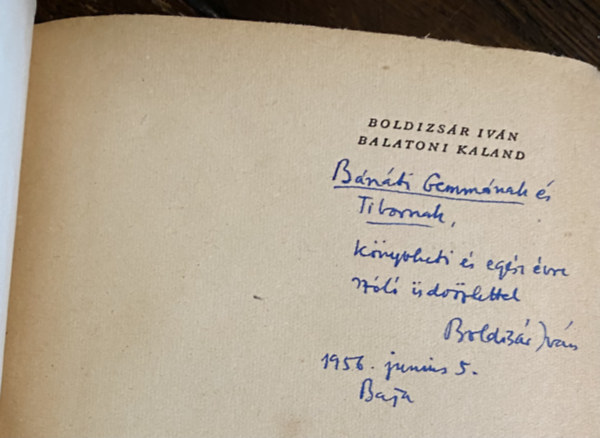 BOLDIZSÁR IVÁN
BALATONI KALAND
Bánáti Gemmának és
Tibornak,
könyvheti és egész évre
szóló üdvözlettel
Boldizsár Iván
1956. junius 5.
Baja